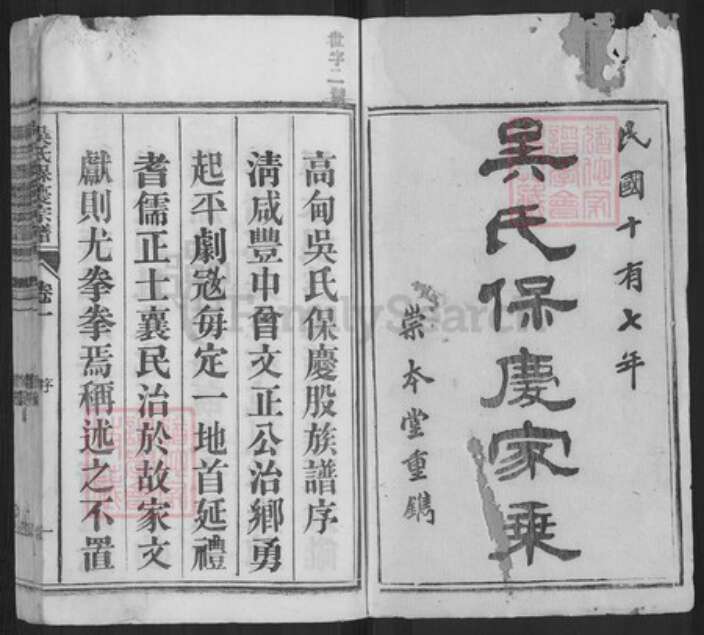 民國十有七年
吳氏保慶家乗
崇本堂重鐫
高甸吳氏保慶股族譜序
淸咸豐中曾文正公治鄉勇
起平劇寇每定一地首延禮
耆儒正士襄民治於故家文
獻則尤拳拳焉稱述之不置
吳氏保慶宗譜
卷一
序
一
FamilySearch